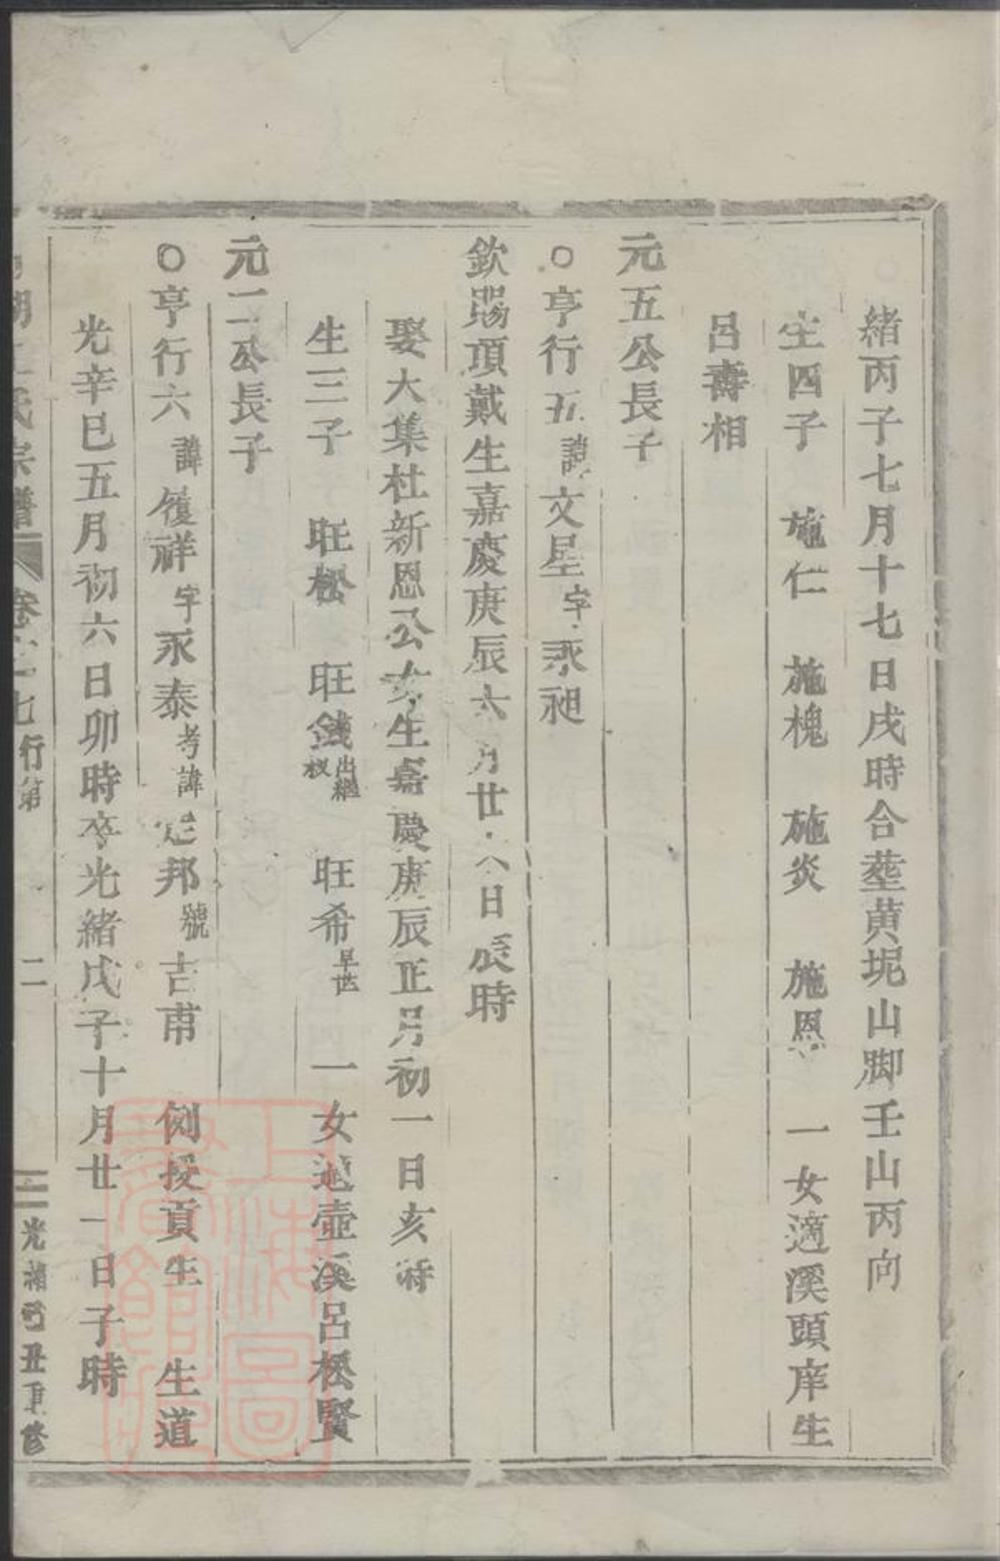 緒丙子七月十七日戌時合塟黄坭山脚壬山丙向
生四子　施仁　施槐　施炎　施恩　一女適溪頭庠生
呂壽相
元五公長子
○亨行五諱文星字永昶
欽賜頂戴生嘉慶庚辰六月廿八日辰時
娶大集杜新恩公女生嘉慶庚辰正月初一日亥時
生三子　旺松　旺錢出繼　旺希早世　一女適壺溪呂松賢
元二公長子
○亨行六諱履祥字永泰考諱定邦號吉甫　例授貢生　生道
光辛巳五月初六日卯時卒光緒戊子十月廿一日子時
氏宗譜　卷　七　行第　二　光緒己丑重修
上海圖書館藏